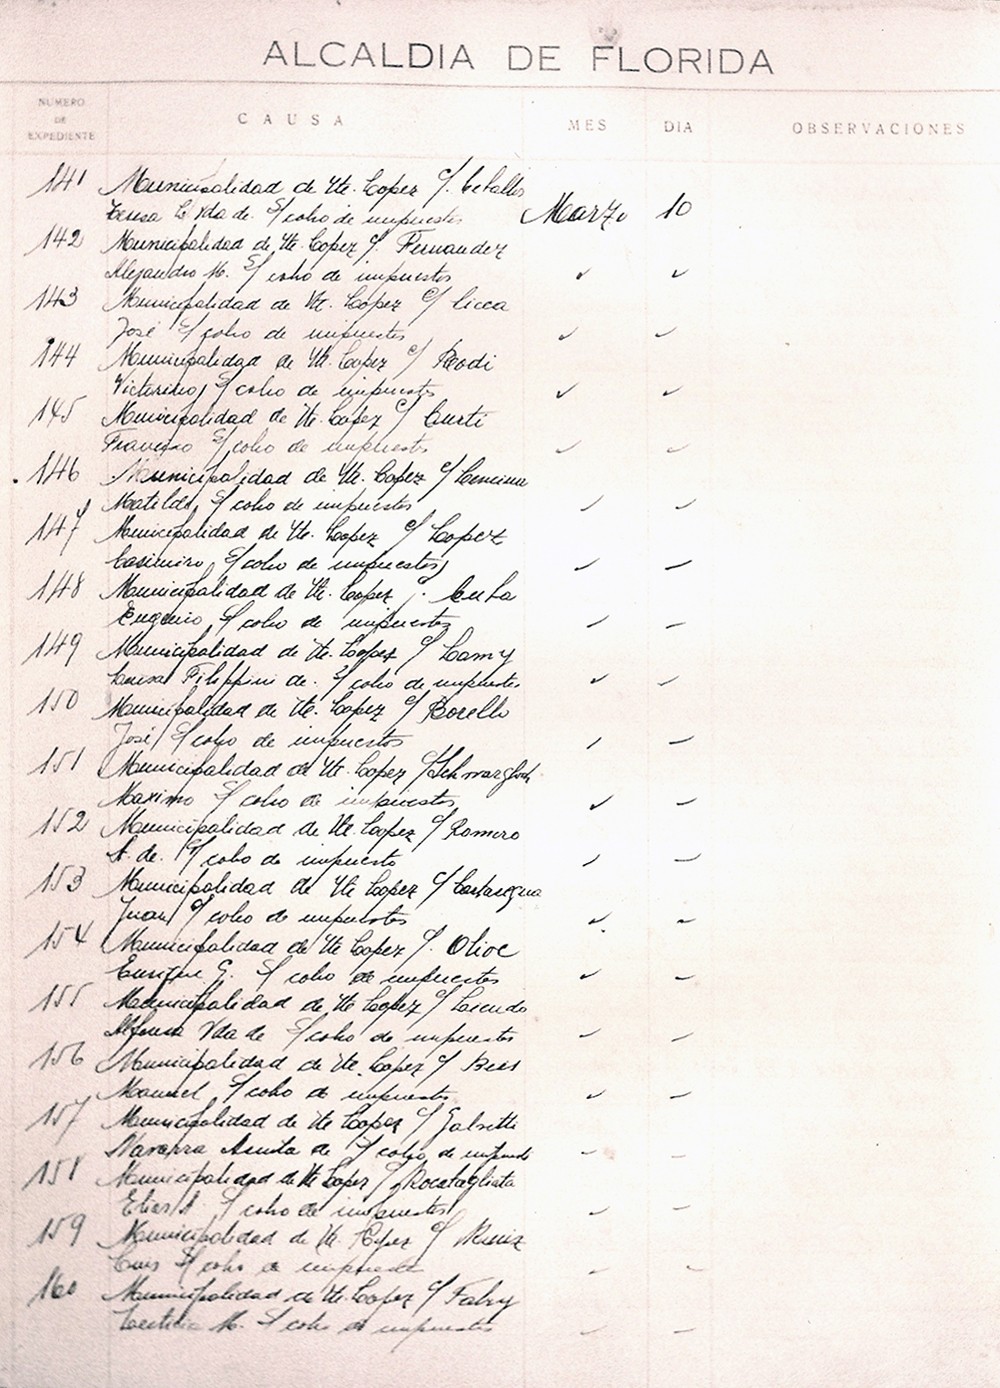 ALCALDIA DE FLORIDA
NUMERO DE EXPEDIENTE CAUSA MES DIA OBSERVACIONES
141 Municipalidad de Vte. Lopez c/. Ceballos
Teresa C. Vda de. S/ cobro de impuestos Marzo 10
142 Municipalidad de Vte. Lopez c/. Fernandez
Alejandro M. S/ cobro de impuestos ✓ ✓
143 Municipalidad de Vte. Lopez c/ Cicca
José S/ cobro de impuestos ✓ ✓
144 Municipalidad de Vte. Lopez c/
Victorino, S/ cobro de impuestos ✓ ✓
145 Municipalidad de Vte. Lopez c/ Curti
S/ cobro de impuestos ✓ ✓
146 Municipalidad de Vte. Lopez c/
Matilde, S/ cobro de impuestos ✓ ✓
147 Municipalidad de Vte. Lopez c/ Lopez
Casimiro, S/ cobro de impuestos ✓ ✓
148 Municipalidad de Vte. Lopez
Eugenio S/ cobro de impuestos ✓ ✓
149 Municipalidad de Vte. Lopez c/ Lamy
Filippini de. S/ cobro de impuestos ✓ ✓
150 Municipalidad de Vte. Lopez c/ Borello
José S/ cobro de impuestos ✓ ✓
151 Municipalidad de Vte. Lopez c/
Maximo S/ cobro de impuestos ✓ ✓
152 Municipalidad de Vte. Lopez c/ Romero
A. de. S/ cobro de impuesto ✓ ✓
153 Municipalidad de Vte Lopez c/
Juan S/ cobro de impuestos ✓ ✓
154 Municipalidad de Vte Lopez c/.
Enrique G. S/ cobro de impuestos ✓ ✓
155 Municipalidad de Vte Lopez c/
Vda de S/ cobro de impuestos ✓ ✓
156 Municipalidad de Vte. Lopez c/
Manuel S/ cobro de impuestos ✓ ✓
157 Municipalidad de Vte Lopez c/
Navarra de S/ cobro de impuesto ✓ ✓
158 Municipalidad de Vte Lopez c/ Rocatagliata
Elias A. S/ cobro de impuestos ✓ ✓
159 Municipalidad de Vte. Lopez c/ Muniz
Luis S/ cobro de impuesto ✓ ✓
160 Municipalidad de Vte. Lopez c/ Fabry
M. S/ cobro de impuestos ✓ ✓